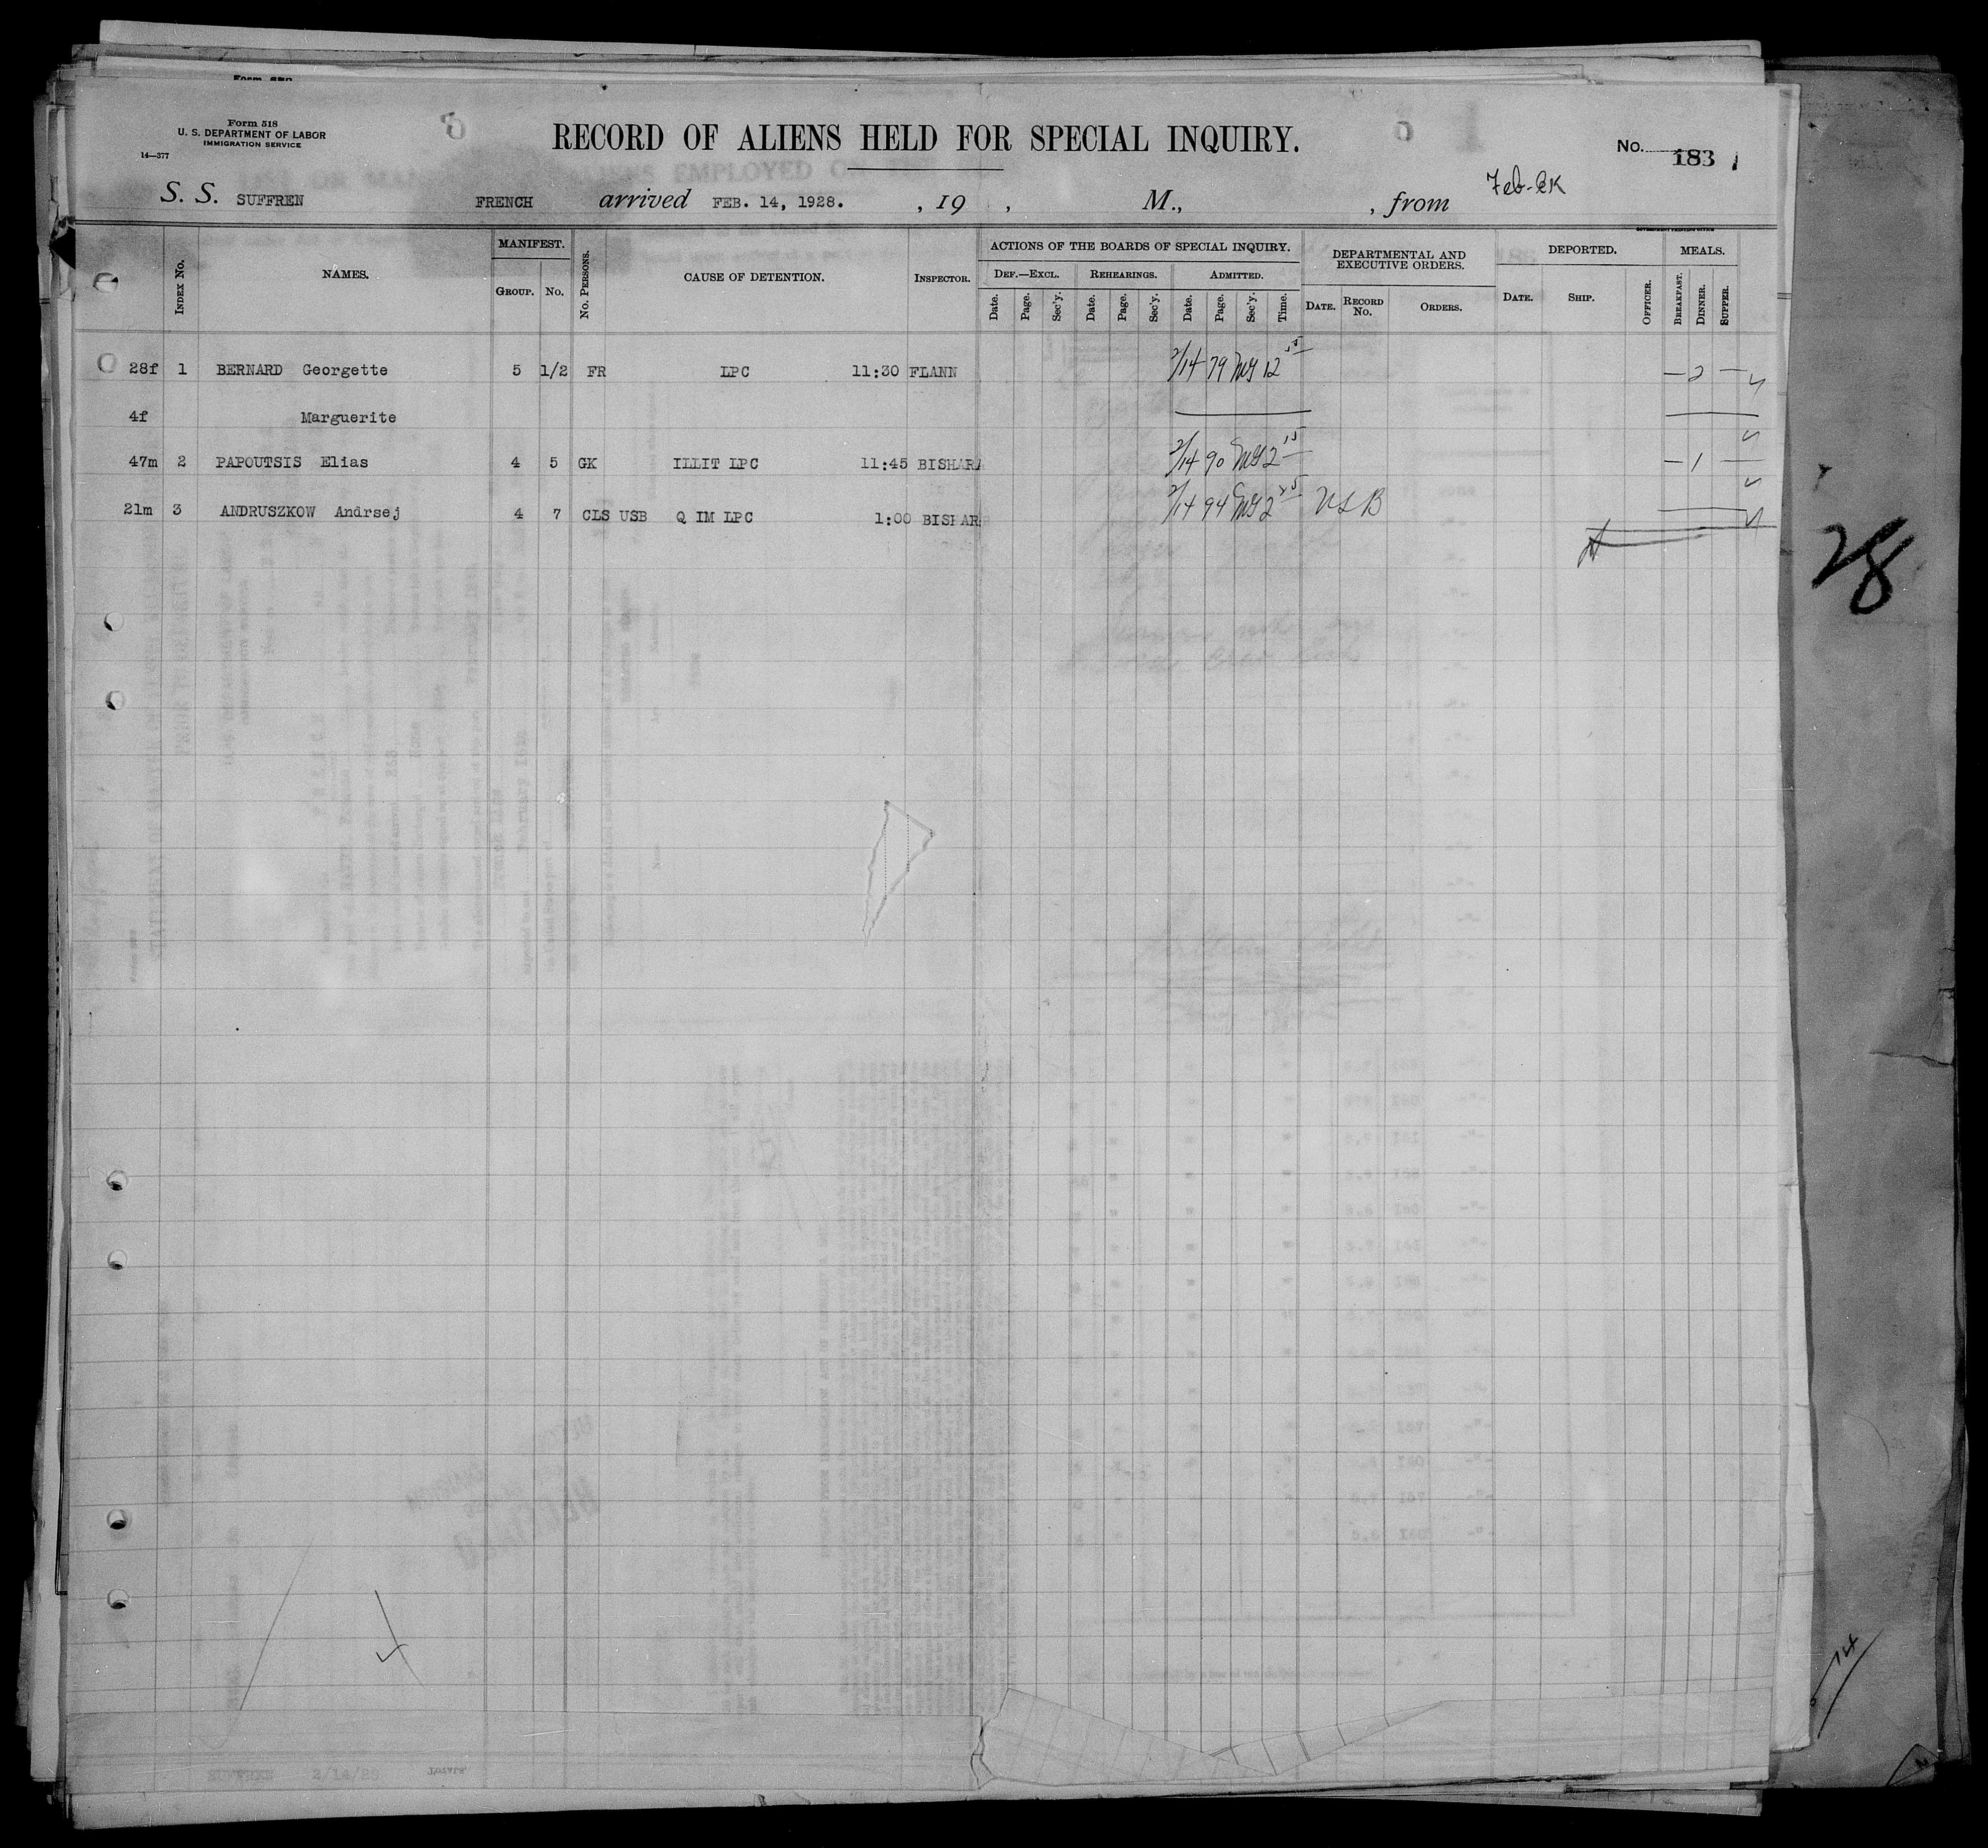 Form 518
U. S. DEPARTMENT OF LABOR
IMMIGRATION SERVICE
14—377
RECORD OF ALIENS HELD FOR SPECIAL INQUIRY.
No. 183
S. S. SUFFREN FRENCH arrived FEB. 14, 1928. , 19 , M., , from
INDEX No. NAMES. MANIFEST. GROUP. No. No. PERSONS. CAUSE OF DETENTION. INSPECTOR.
ACTIONS OF THE BOARDS OF SPECIAL INQUIRY.
DEF.—EXCL. Date. Page. Sec'y. REHEARINGS. Date. Page. Sec'y. ADMITTED. Date. Page. Sec'y. Time.
DEPARTMENTAL AND EXECUTIVE ORDERS. DATE. RECORD No. ORDERS.
DEPORTED. DATE. SHIP. OFFICER.
MEALS. BREAKFAST. DINNER. SUPPER.
28f 1 BERNARD Georgette 5 1/2 FR LPC 11:30 FLANN 2/14 79 12 — 2 —
4f Marguerite
47m 2 PAPOUTSIS Elias 4 5 GK ILLIT LPC 11:45 BISHARA 2/14 90 2 15 — 1 —
21m 3 ANDRUSZKOW Andrsej 4 7 CLS USB Q IM LPC 1:00 BISHAR 2/14 94 2
28
14
SUFFREN 2/14/28